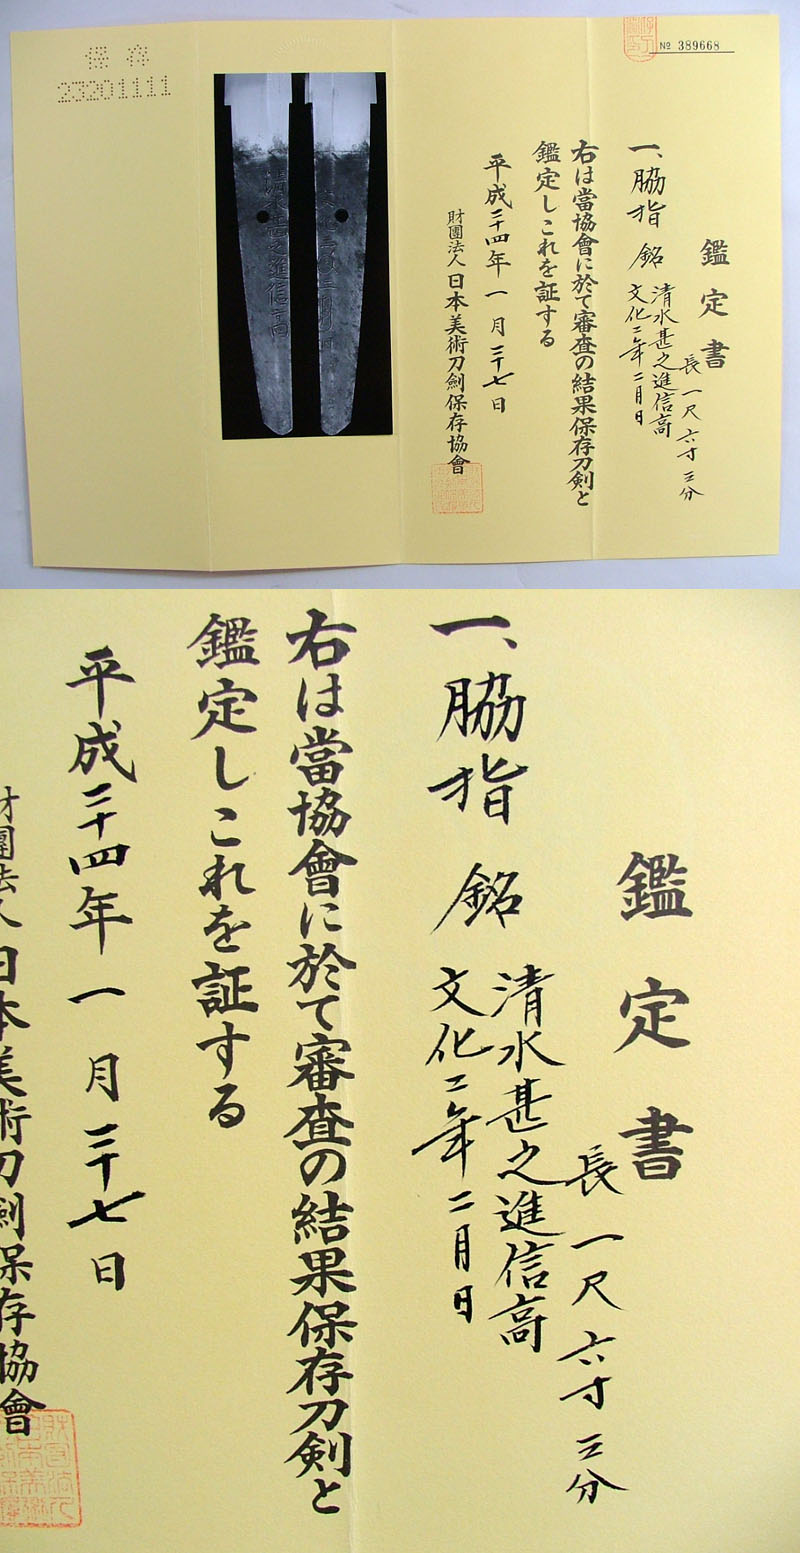 保存
23201111
№ 389668
鑑定書
長 一尺六寸三分
一、脇指 銘 清水甚之進信高
文化二年二月日
右は當協會に於て審査の結果保存刀剣と
鑑定しこれを証する
平成二十四年一月二十七日
財團法人日本美術刀劍保存協會
鑑定書
長 一尺六寸三分
一、脇指 銘 清水甚之進信高
文化二年二月日
右は當協會に於て審査の結果保存刀剣と
鑑定しこれを証する
平成二十四年一月二十七日
財團法人日本美術刀劍保存協會